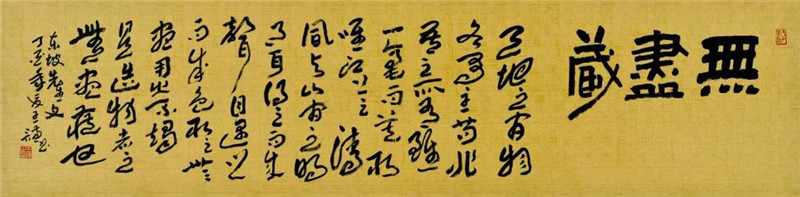 無盡藏
天地之間物
各有主苟非
吾之所有雖
一毫而莫取
唯江上之清
風與山間之明
月耳得之而為
聲目遇之
而成色取之無
禁用之不竭
是造物者之
無盡藏也
東坡先生文